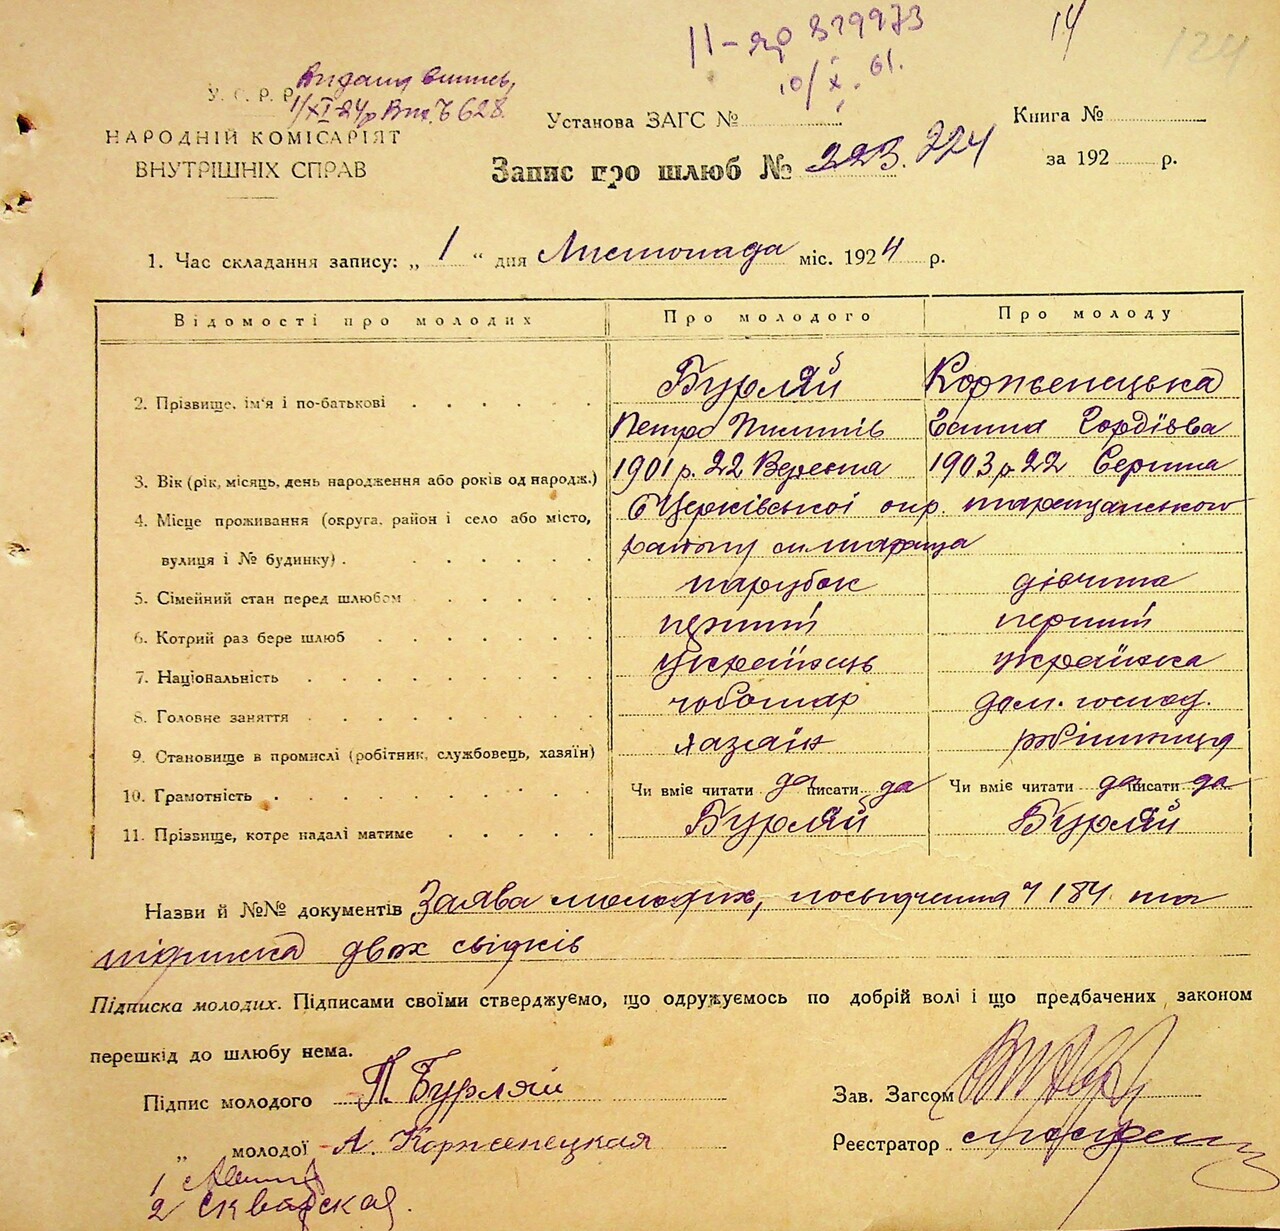 II-яр 379973
10/X. 61.
14
124
У. С. Р. Р.
Видану виписъ,
1/XI-24р Вих. Ч 628
НАРОДНІЙ КОМІСАРІЯТ
ВНУТРІШНІХ СПРАВ
Установа ЗАГС №
Книга №
Запис про шлюб № 223. 224
за 192 р.
1. Час складання запису: „ 1 “ дня Листопада міс. 1924 р.
Відомості про молодих Про молодого Про молоду
2. Прізвище, ім'я і по-батькові Бурляй Корженецька
Петро Пилипів Ганна Гордіїва
3. Вік (рік, місяць, день народження або років од народж.) 1901 р. 22 Вересня 1903 р. 22 Серпня
4. Місце проживання (округа, район і село або місто, БЦерківської окр. таращанського
вулиця і № будинку) району м. Тараща
5. Сімейний стан перед шлюбом парубок дівчина
6. Котрий раз бере шлюб перший перший
7. Національність українець українка
8. Головне заняття чоботар дом. господ.
9. Становище в промислі (робітник, службовець, хазяїн) хазяїн робітниця
10. Грамотність Чи вміє читати да писати да Чи вміє читати да писати да
11. Прізвище, котре надалі матиме Бурляй Бурляй
Назви й №№ документів Заява молодих, посвідчення Ч 184. та
підписка двох свідків
Підписка молодих. Підписами своїми стверджуємо, що одружуємось по добрій волі і що предбачених законом
перешкід до шлюбу нема.
Підпис молодого П. Бурляй
Зав. Загсом
„ молодої А. Корженецкая
Реєстратор
1
2 Скварская.